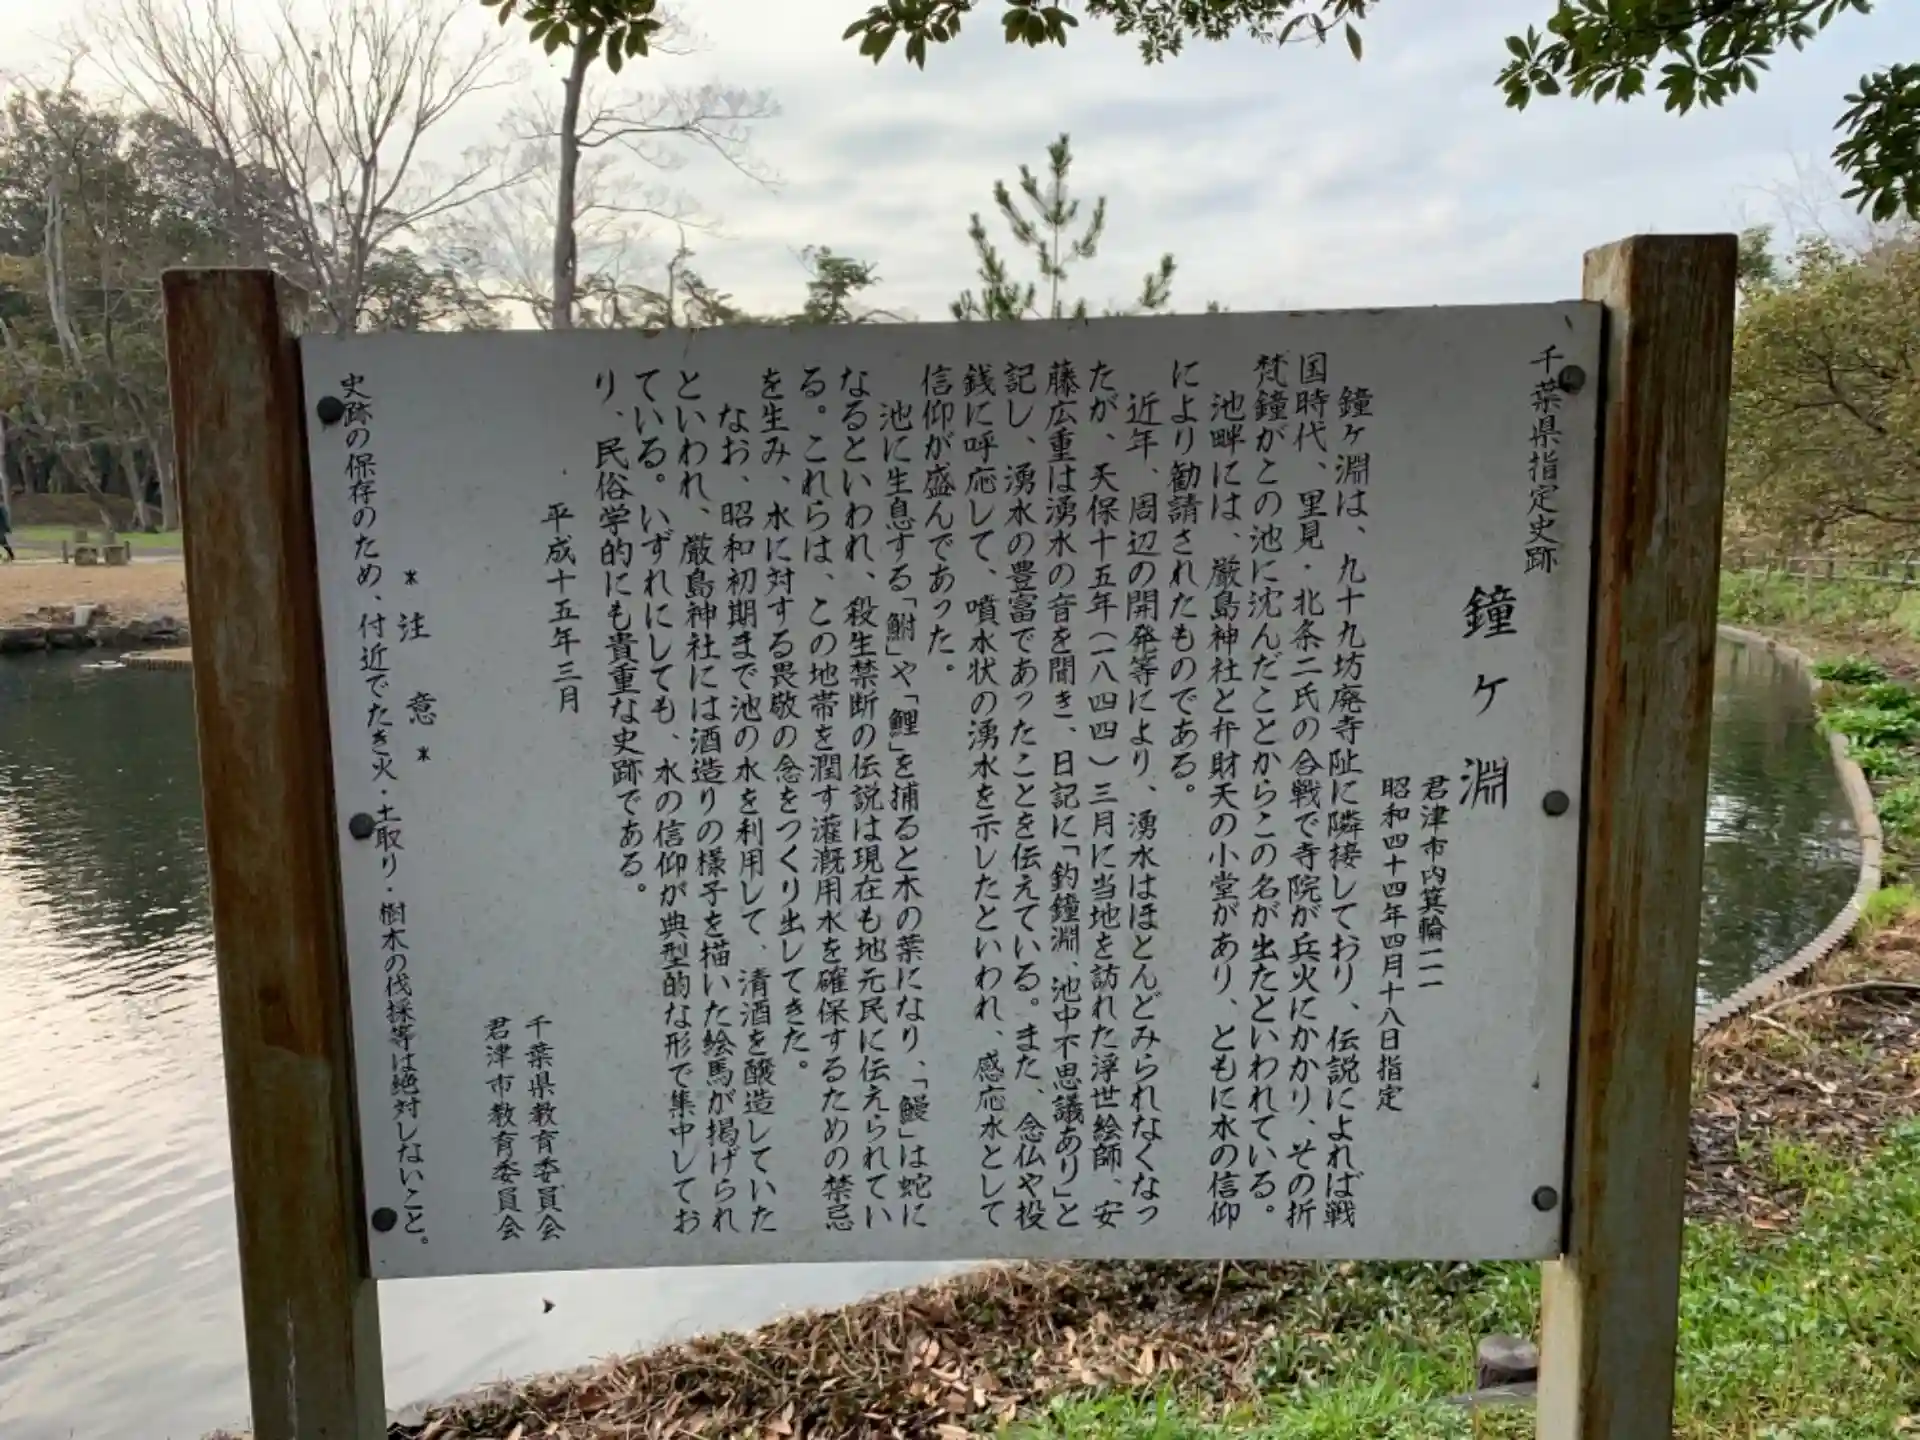 千葉県指定史跡
鐘ヶ淵
君津市内箕輪一一一
昭和四十四年四月十八日指定
鐘ヶ淵は、九十九坊廃寺阯に隣接しており、伝説によれば戦
国時代、里見・北条二氏の合戦で寺院が兵火にかかり、その折
梵鐘がこの池に沈んだことからこの名が出たといわれている。
池畔には、厳島神社と弁財天の小堂があり、ともに水の信仰
により勧請されたものである。
近年、周辺の開発等により、湧水はほとんどみられなくなっ
たが、天保十五年(一八四四)三月に当地を訪れた浮世絵師、安
藤広重は湧水の音を聞き、日記に「釣鐘淵、池中不思議あり」と
記し、湧水の豊富であったことを伝えている。また、念仏や投
銭に呼応して、噴水状の湧水を示したといわれ、感応水として
信仰が盛んであった。
池に生息する「鮒」や「鯉」を捕ると木の葉になり、「鰻」は蛇に
なるといわれ、殺生禁断の伝説は現在も地元民に伝えられてい
る。これらは、この地帯を潤す灌漑用水を確保するための禁忌
を生み、水に対する畏敬の念をつくり出してきた。
なお、昭和初期まで池の水を利用して、清酒を醸造していた
といわれ、厳島神社には酒造りの様子を描いた絵馬が掲げられ
ている。いずれにしても、水の信仰が典型的な形で集中してお
り、民俗学的にも貴重な史跡である。
平成十五年三月
千葉県教育委員会
君津市教育委員会
＊注意＊
史跡の保存のため、付近でたき火・土取り・樹木の伐採等は絶対しないこと。